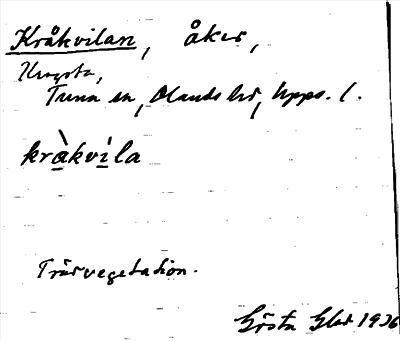 Kråkvilan, åker,
Krogsta,
Tuna sn, Olands hd, Upps. l.
kràkvìla
Trädvegetation.
Gösta 1936